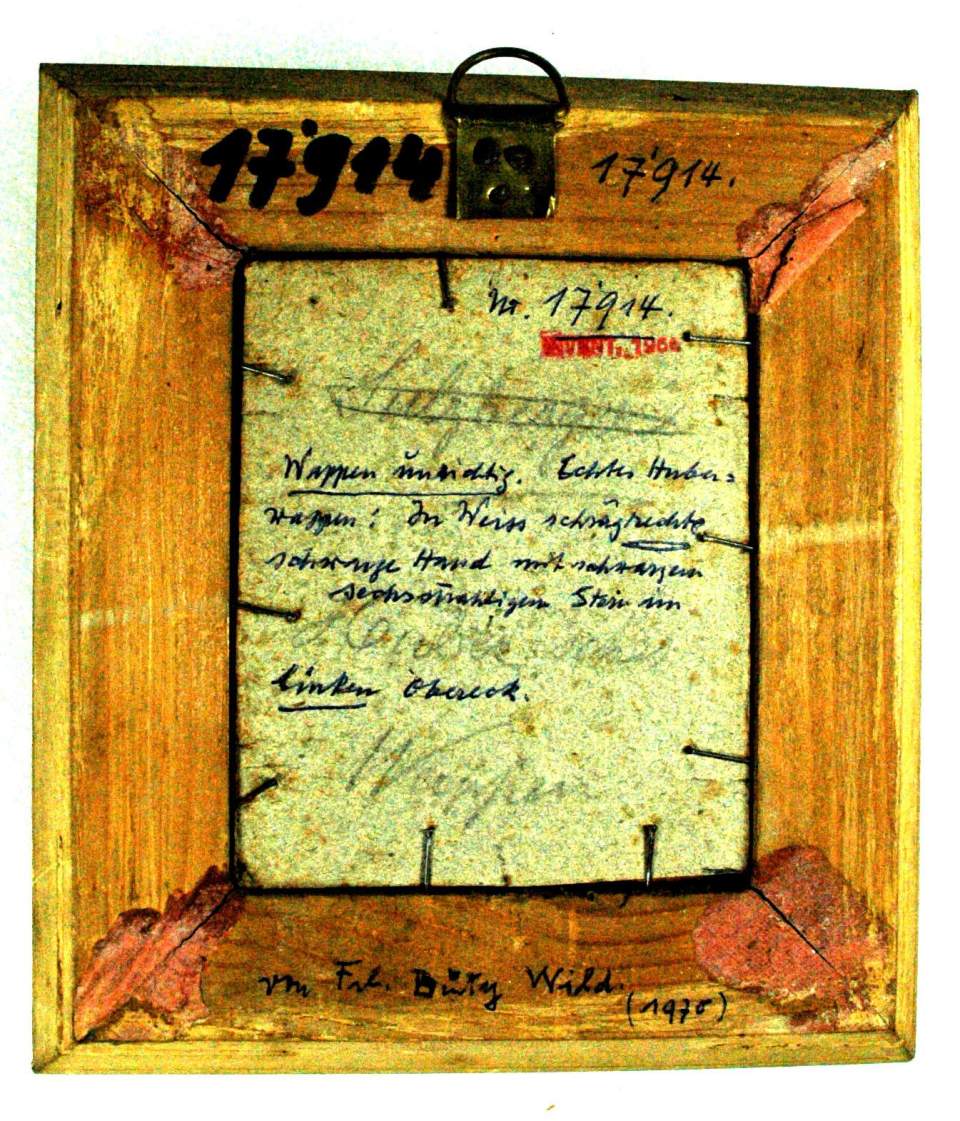 17'914
17'914.
Nr. 17'914.
INVENT. 196
Wappen unrichtig. Echtes Huber=
wappen: In Weiss schrägrechte
schwarze Hand mit schwarzem
sechsstrahligem Stern im
linken Obereck.
Wappen
von Frl. Düty Wild.
(1970)